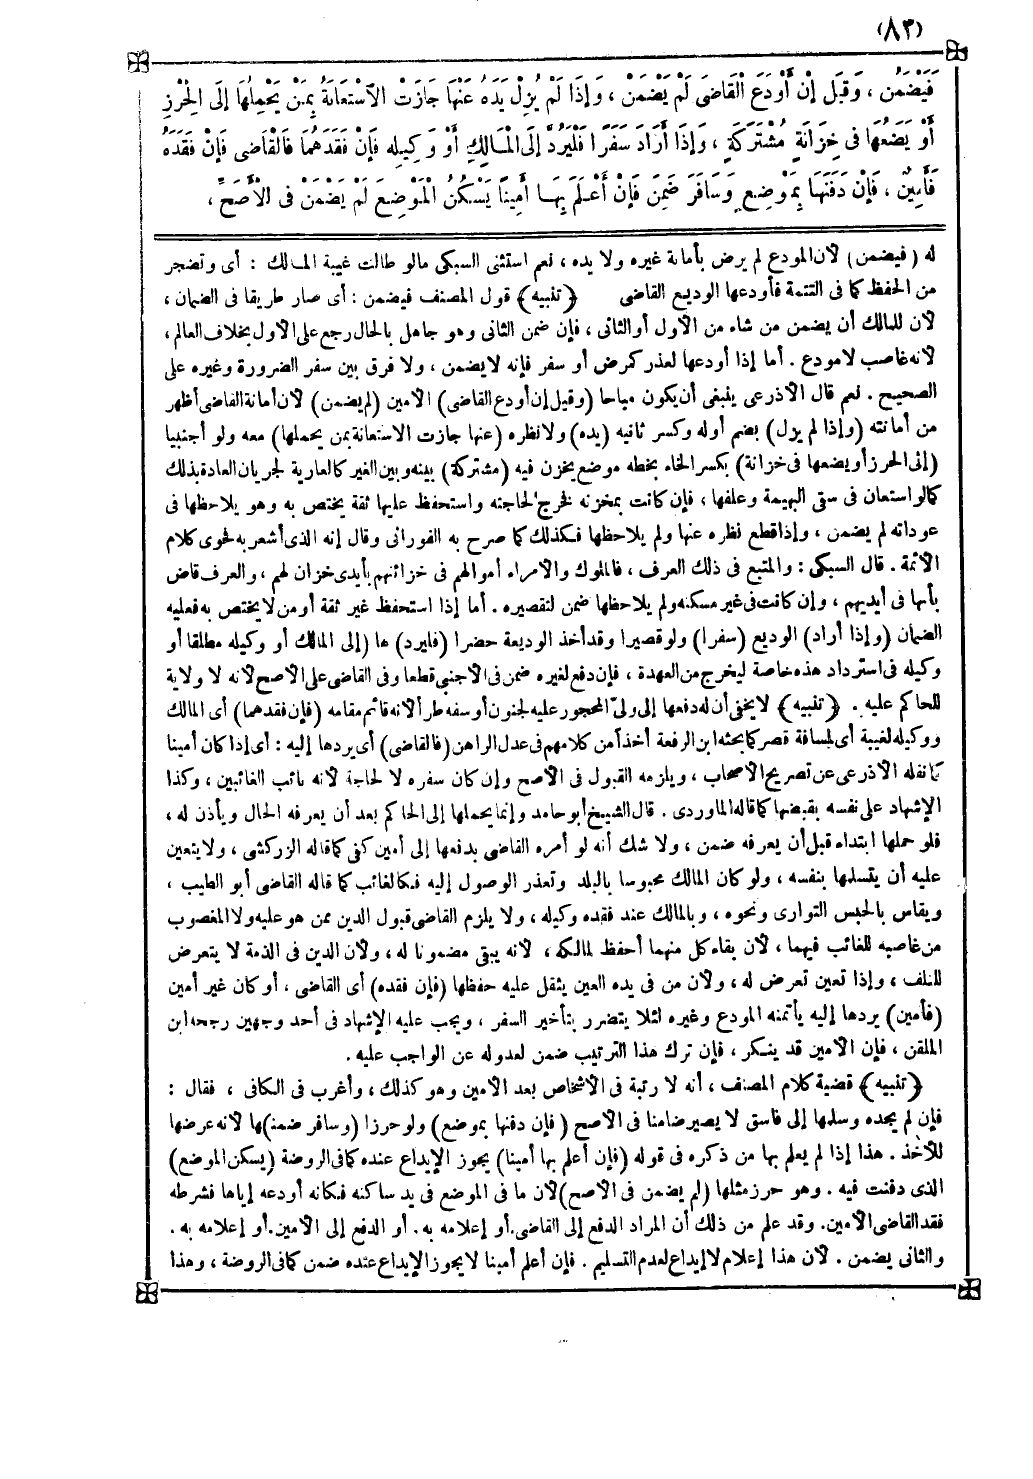 (٨٣)
فَيَضْمَنُ ، وَقِيلَ إنْ أَوْدَعَ الْقَاضِىَ لَمْ يَضْمَنْ ، وَإِذَا لَمْ يُزِلْ يَدَهُ عَنْهَا جَازَتْ الاَسْتِعَانَةُ بِمَنْ يَحْمِلُهَا إلَى الْحِرْزِ
أَوْ يَضَعُهَا فِى خِزَانَةٍ مُشْتَرَكَةٍ ، وَإِذَا أَرَادَ سَفَرًا فَلْيَرُدَّ إلَى الْمَالِكِ أَوْ وَكِيلِهِ فَإِنْ فَقَدَهُمَا فَالْقَاضِى فَإِنْ فَقَدَهُ
فَأَمِينٌ ، فَإِنْ دَفَنَهَا بِمَوْضِعٍ وَسَافَرَ ضَمِنَ فَإِنْ أَعْلَمَ بِهَا أَمِينًا يَسْكُنُ الْمَوْضِعَ لَمْ يَضْمَنْ فِى الْأَصَحِّ ،
له (فيضمن) لأن المودع لم يرض بأمانة غيره ولا يده ، نعم استثنى السبكى مالو طالت غيبة المالك : أى وتضجر
من الحفظ كما فى التتمة فأودعها الوديع القاضى ﴿تنبيه﴾ قول المصنف فيضمن : أى صار طريقا فى الضمان ،
لأن للمالك أن يضمن من شاء من الأول أو الثانى ، فإن ضمن الثانى وهو جاهل بالحال رجع على الأول بخلاف العالم ،
لأنه غاصب لامودع . أما إذا أودعها لعذر كمرض أو سفر فإنه لايضمن ، ولا فرق بين سفر الضرورة وغيره على
الصحيح . نعم قال الأذرعى ينبغى أن يكون مباحا (وقيل إن أودع القاضى) الأمين (لم يضمن) لأن أمانة القاضى أظهر
من أمانته (وإذا لم يزل) بضم أوله وكسر ثانيه (يده) ولا نظره (عنها جازت الاستعانة بمن يحملها) معه ولو أجنبيا
(إلى الحرز أو يضعها فى خزانة) بكسر الخاء بخطه موضع يخزن فيه (مشتركة) بينه وبين الغير كالعارية لجريان العادة بذلك
كمالو استعان فى سقى البهيمة وعلفها ، فإن كانت بمخزنه فخرج لحاجته واستحفظ عليها ثقة يختص به وهو يلاحظها فى
عوداته لم يضمن ، وإذا قطع نظره عنها ولم يلاحظها فكذلك كما صرح به الفورانى وقال إنه الذى أشعر به فحوى كلام
الأئمة . قال السبكى : والمتبع فى ذلك العرف ، فالملوك والأمراء أموالهم فى خزائنهم بأيدى خزان لهم ، والعرف قاض
بأنها فى أيديهم ، وإن كانت فى غير مسكنه ولم يلاحظها ضمن لتقصيره . أما إذا استحفظ غير ثقة أو من لا يختص به فعليه
الضمان (وإذا أراد) الوديع (سفرا) ولو قصيرا وقد أخذ الوديعة حضرا (فليرد) ها (إلى المالك أو وكيله مطلقا أو
وكيله فى استرداد هذه خاصة ليخرج من العهدة ، فإن دفع لغيره ضمن فى الأجنبى قطعا وفى القاضى على الأصح لأنه لا ولاية
للحاكم عليه . ﴿تنبيه﴾ لا يخفى أن له دفعها إلى ولىّ المحجور عليه لجنون أو سفه طرأ لأنه قائم مقامه (فإن فقدهما) أى المالك
ووكيله لغيبة أى لمسافة قصر كما بحثه ابن الرفعة أخذا من كلامهم فى عدل الراهن (فالقاضى) أى يردها إليه : أى إذا كان أمينا
كما نقله الأذرعى عن تصريح الأصحاب ، ويلزمه القبول فى الأصح وإن كان سفره لا لحاجة لأنه نائب الغائبين ، وكذا
الإشهاد على نفسه بقبضها كما قاله الماوردى . قال الشيخ أبو حامد وإنما يحملها إلى الحاكم بعد أن يعرفه الحال ويأذن له ،
فلو حملها ابتداء قبل أن يعرفه ضمن ، ولا شك أنه لو أمره القاضى بدفعها إلى أمين كفى كما قاله الزركشى ، ولا يتعين
عليه أن يتسلمها بنفسه ، ولو كان المالك محبوسا بالبلد وتعذر الوصول إليه فكالغائب كما قاله القاضى أبو الطيب ،
ويقاس بالحبس التوارى ونحوه ، وبالمالك عند فقده وكيله ، ولا يلزم القاضى قبول الدين ممن هو عليه ولا المغصوب
من غاصبه للغائب فيهما ، لأن بقاء كل منهما أحفظ لمالكه ، لأنه يبقى مضمونا له ، ولأن الدين فى الذمة لا يتعرض
للتلف ، وإذا تعين تعرض له ، ولأن من فى يده العين يثقل عليه حفظها (فإن فقده) أى القاضى ، أو كان غير أمين
(فأمين) يردها إليه يأتمنه المودع وغيره لئلا يتضرر بتأخير السفر ، ويجب عليه الإشهاد فى أحد وجهين رجحه ابن
الملقن ، فإن الأمين قد ينكر ، فإن ترك هذا الترتيب ضمن لعدوله عن الواجب عليه .
﴿تنبيه﴾ قضية كلام المصنف ، أنه لا رتبة فى الأشخاص بعد الأمين وهو كذلك ، وأغرب فى الكافى ، فقال :
فإن لم يجده وسلمها إلى فاسق لا يصير ضامنا فى الأصح (فإن دفنها بموضع) ولو حرزا (وسافر ضمن)ها لأنه عرضها
للأخذ . هذا إذا لم يعلم بها من ذكره فى قوله (فإن أعلم بها أمينا) يجوز الإيداع عنده كما فى الروضة (يسكن الموضع)
الذى دفنت فيه . وهو حرز مثلها (لم يضمن فى الأصح) لأن ما فى الموضع فى يد ساكنه فكأنه أودعه إياها فشرطه
فقد القاضى الأمين. وقد علم من ذلك أن المراد الدفع إلى القاضى. أو إعلامه به. أو الدفع إلى الأمين. أو إعلامه به .
والثانى يضمن . لأن هذا إعلام لا إيداع لعدم التسليم . فإن أعلم أمينا لا يجوز الإيداع عنده ضمن كما فى الروضة ، وهذا